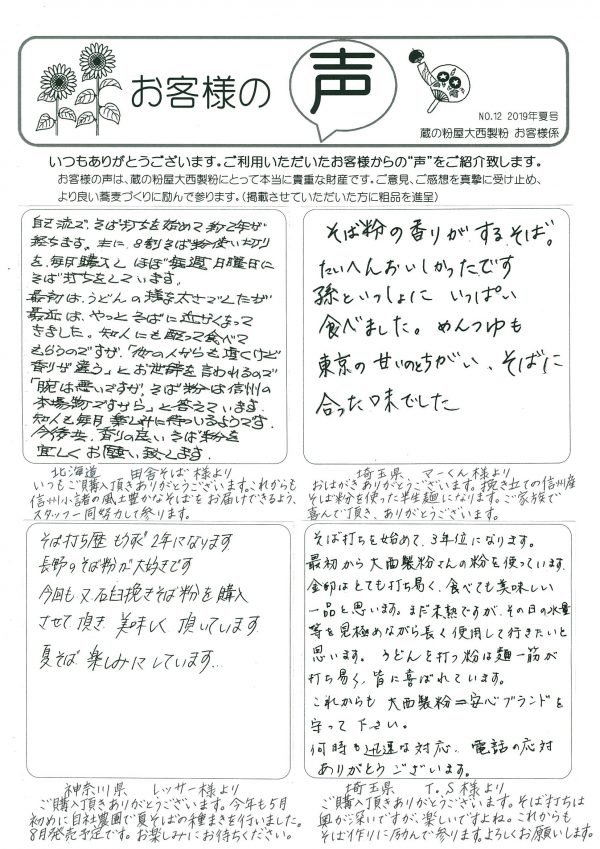 お客様の声
NO.12 2019年夏号
蔵の粉屋大西製粉 お客様係
いつもありがとうございます。ご利用いただいたお客様からの“声”をご紹介致します。
お客様の声は、蔵の粉屋大西製粉にとって本当に貴重な財産です。ご意見、ご感想を真摯に受け止め、
より良い蕎麦づくりに励んで参ります。(掲載させていただいた方に粗品を進呈)
自己流で、そば打ちを始めて約2年が
経ちます。主に、8割そば粉使い切り
を、毎月購入し ほぼ毎週 日曜日に
そば打ちをしています。
最初は、うどんの様な太さでしたが
最近は、やっとそばに近づくなって
きました。知人にも配って食べて
もらうのですが、「他の人からも頂くけど
香りが違う」とお世辞を言われるので
「腕は悪いですが、そば粉は信州の
本場物ですから」と答えています。
知人も毎月 楽しみに待っているようです。
今後共、香りの良いそば粉を
宜しくお願い致します。
北海道 田舎そば様より
いつもご購入頂きありがとうございます。これからも
信州小諸の風土豊かなそばをお届けできるよう、
スタッフ一同努力して参ります。
そば粉の香りがするそば。
たいへんおいしかったです
孫といっしょに いっぱい
食べました。めんつゆも
東京の甘いのとちがい、そばに
合った味でした
埼玉県 マーくん様より
おはがきありがとうございます。挽き立ての信州産
そば粉を使った半生麺になります。ご家族で
喜んで頂き、ありがとうございます。
そば打ち歴も約2年になります
長野のそば粉が大好きです
今回も又石臼挽きそば粉を購入
させて頂き 美味しく頂いています
夏そば 楽しみにしています…
神奈川県 レッサー様より
ご購入頂きありがとうございます。今年も5月
初めに自社農園で夏そばの種まきを行いました。
8月発売予定です。お楽しみにお待ちください。
そば打ちを始めて、3年位になります。
最初から大西製粉さんの粉を使っています。
金印はとても打ち易く、食べても美味しい
一品と思います。まだ未熟ですが、その日の水量
等を見極めながら長く使用して行きたいと
思います。 うどんを打つ粉は麺一筋が
打ち易く、皆に喜ばれています。
これからも 大西製粉=安心ブランドを
守って下さい。
何時も迅速な対応、電話の応対
ありがとうございます。
埼玉県 T.S様より
ご購入頂きありがとうございます。そば打ちは
奥が深いですが、楽しいですよね。これからも
そば作りに励んで参ります。よろしくお願いします。